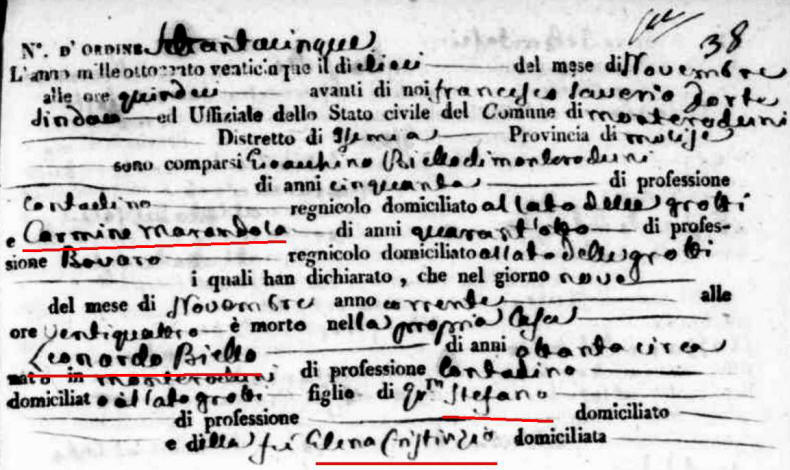 38
N°. D'ORDINE Settantacinque
L'anno mille ottocento venticinque il dì dieci del mese di Novembre
alle ore quindeci avanti di noi Francesco Saverio Forte
Sindaco ed Uffiziale dello Stato civile del Comune di Monteroduni
Distretto di Isernia Provincia di Molise
sono comparsi Gioacchino Biello di Monteroduni
di anni cinquanta di professione
Contadino regnicolo domiciliato al lato delle grotti
e Carmine Marandola di anni quarant'otto di profes-
sione Bovaro regnicolo domiciliato al lato delle grotti
i quali han dichiarato, che nel giorno nove
del mese di Novembre anno corrente alle
ore ventiquattro è morto nella propria Casa
Leonardo Biello di anni ottanta circa
nato in Monteroduni di professione Contadino
domiciliato al lato grotti figlio di qm Stefano
di professione domiciliato
e di della fu Elena Cristinzio domiciliata